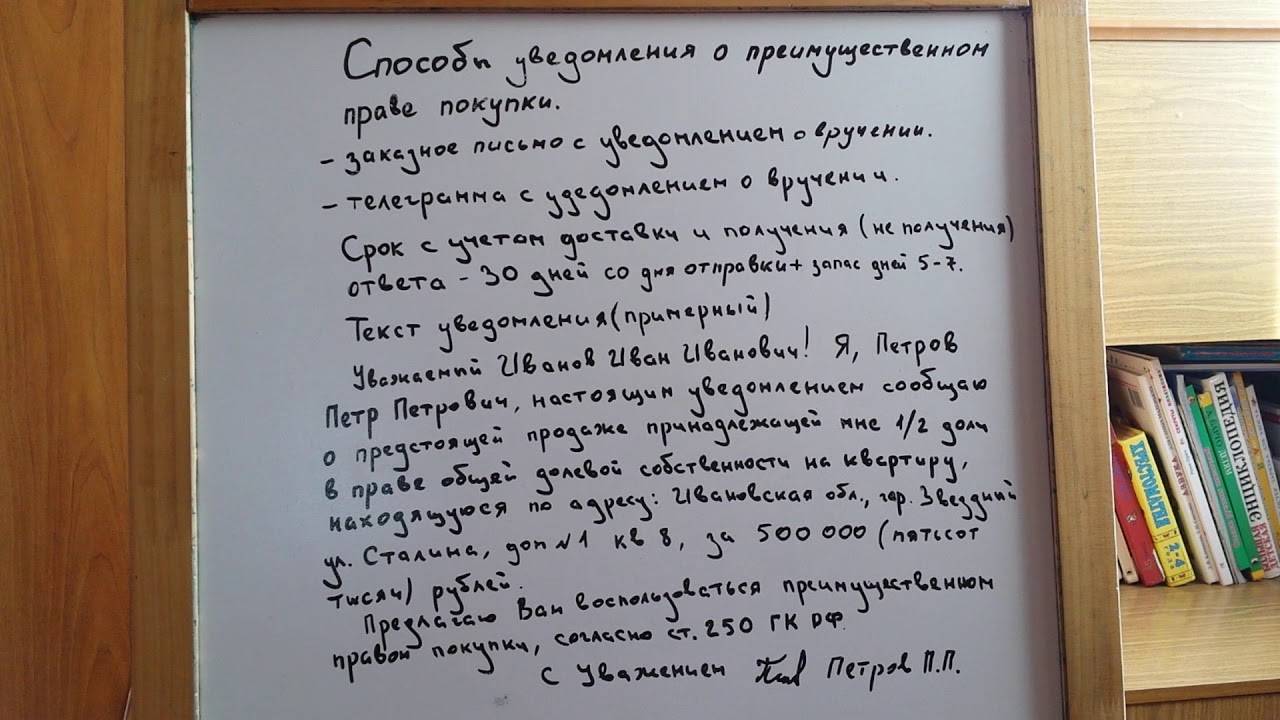 Способы уведомления о преимущественном
праве покупки.
- заказное письмо с уведомлением о вручении.
- телеграмма с удедомлением о вручении.
Срок с учетом доставки и получения (не получения)
ответа - 30 дней со дня отправки + запас дней 5-7.
Текст уведомления (примерный)
Уважаемый Иванов Иван Иванович! Я, Петров
Петр Петрович, настоящим уведомлением сообщаю
о предстоящей продаже принадлежащей мне 1/2 доли
в праве общей долевой собственности на квартиру,
находящуюся по адресу: Ивановская обл., гор. Звездный
ул. Сталина, дом №1 кв 8, за 500 000 (пятьсот
тысяч) рублей.
Предлагаю Вам воспользоваться преимущественном
правом покупки, согласно ст. 250 ГК РФ.
С Уважением Петров П.П.
ЭНЦИКЛОПЕДИЯ
2-4